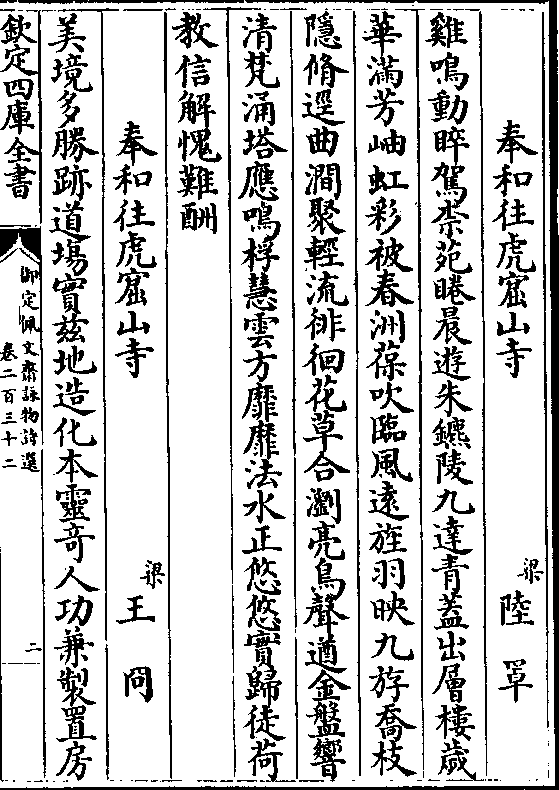 奉和往虎窟山寺
梁陸罩
雞鳴動睟駕柰苑睠晨遊朱鑣陵九逵青蓋出層樓歲
華滿芳岫虹彩被春洲葆吹臨風遠旌羽映九斿喬枝
隱脩逕曲澗聚輕流徘徊花草合瀏亮鳥聲遒金盤響
清梵涌塔應鳴桴慧雲方靡靡法水正悠悠實歸徒荷
教信解愧難酬
奉和往虎窟山寺
梁王冏
美境多勝跡道塲實兹地造化本靈竒人功兼製置房
欽定四庫全書
御定佩文齋詠物詩選
卷二百三十二
二